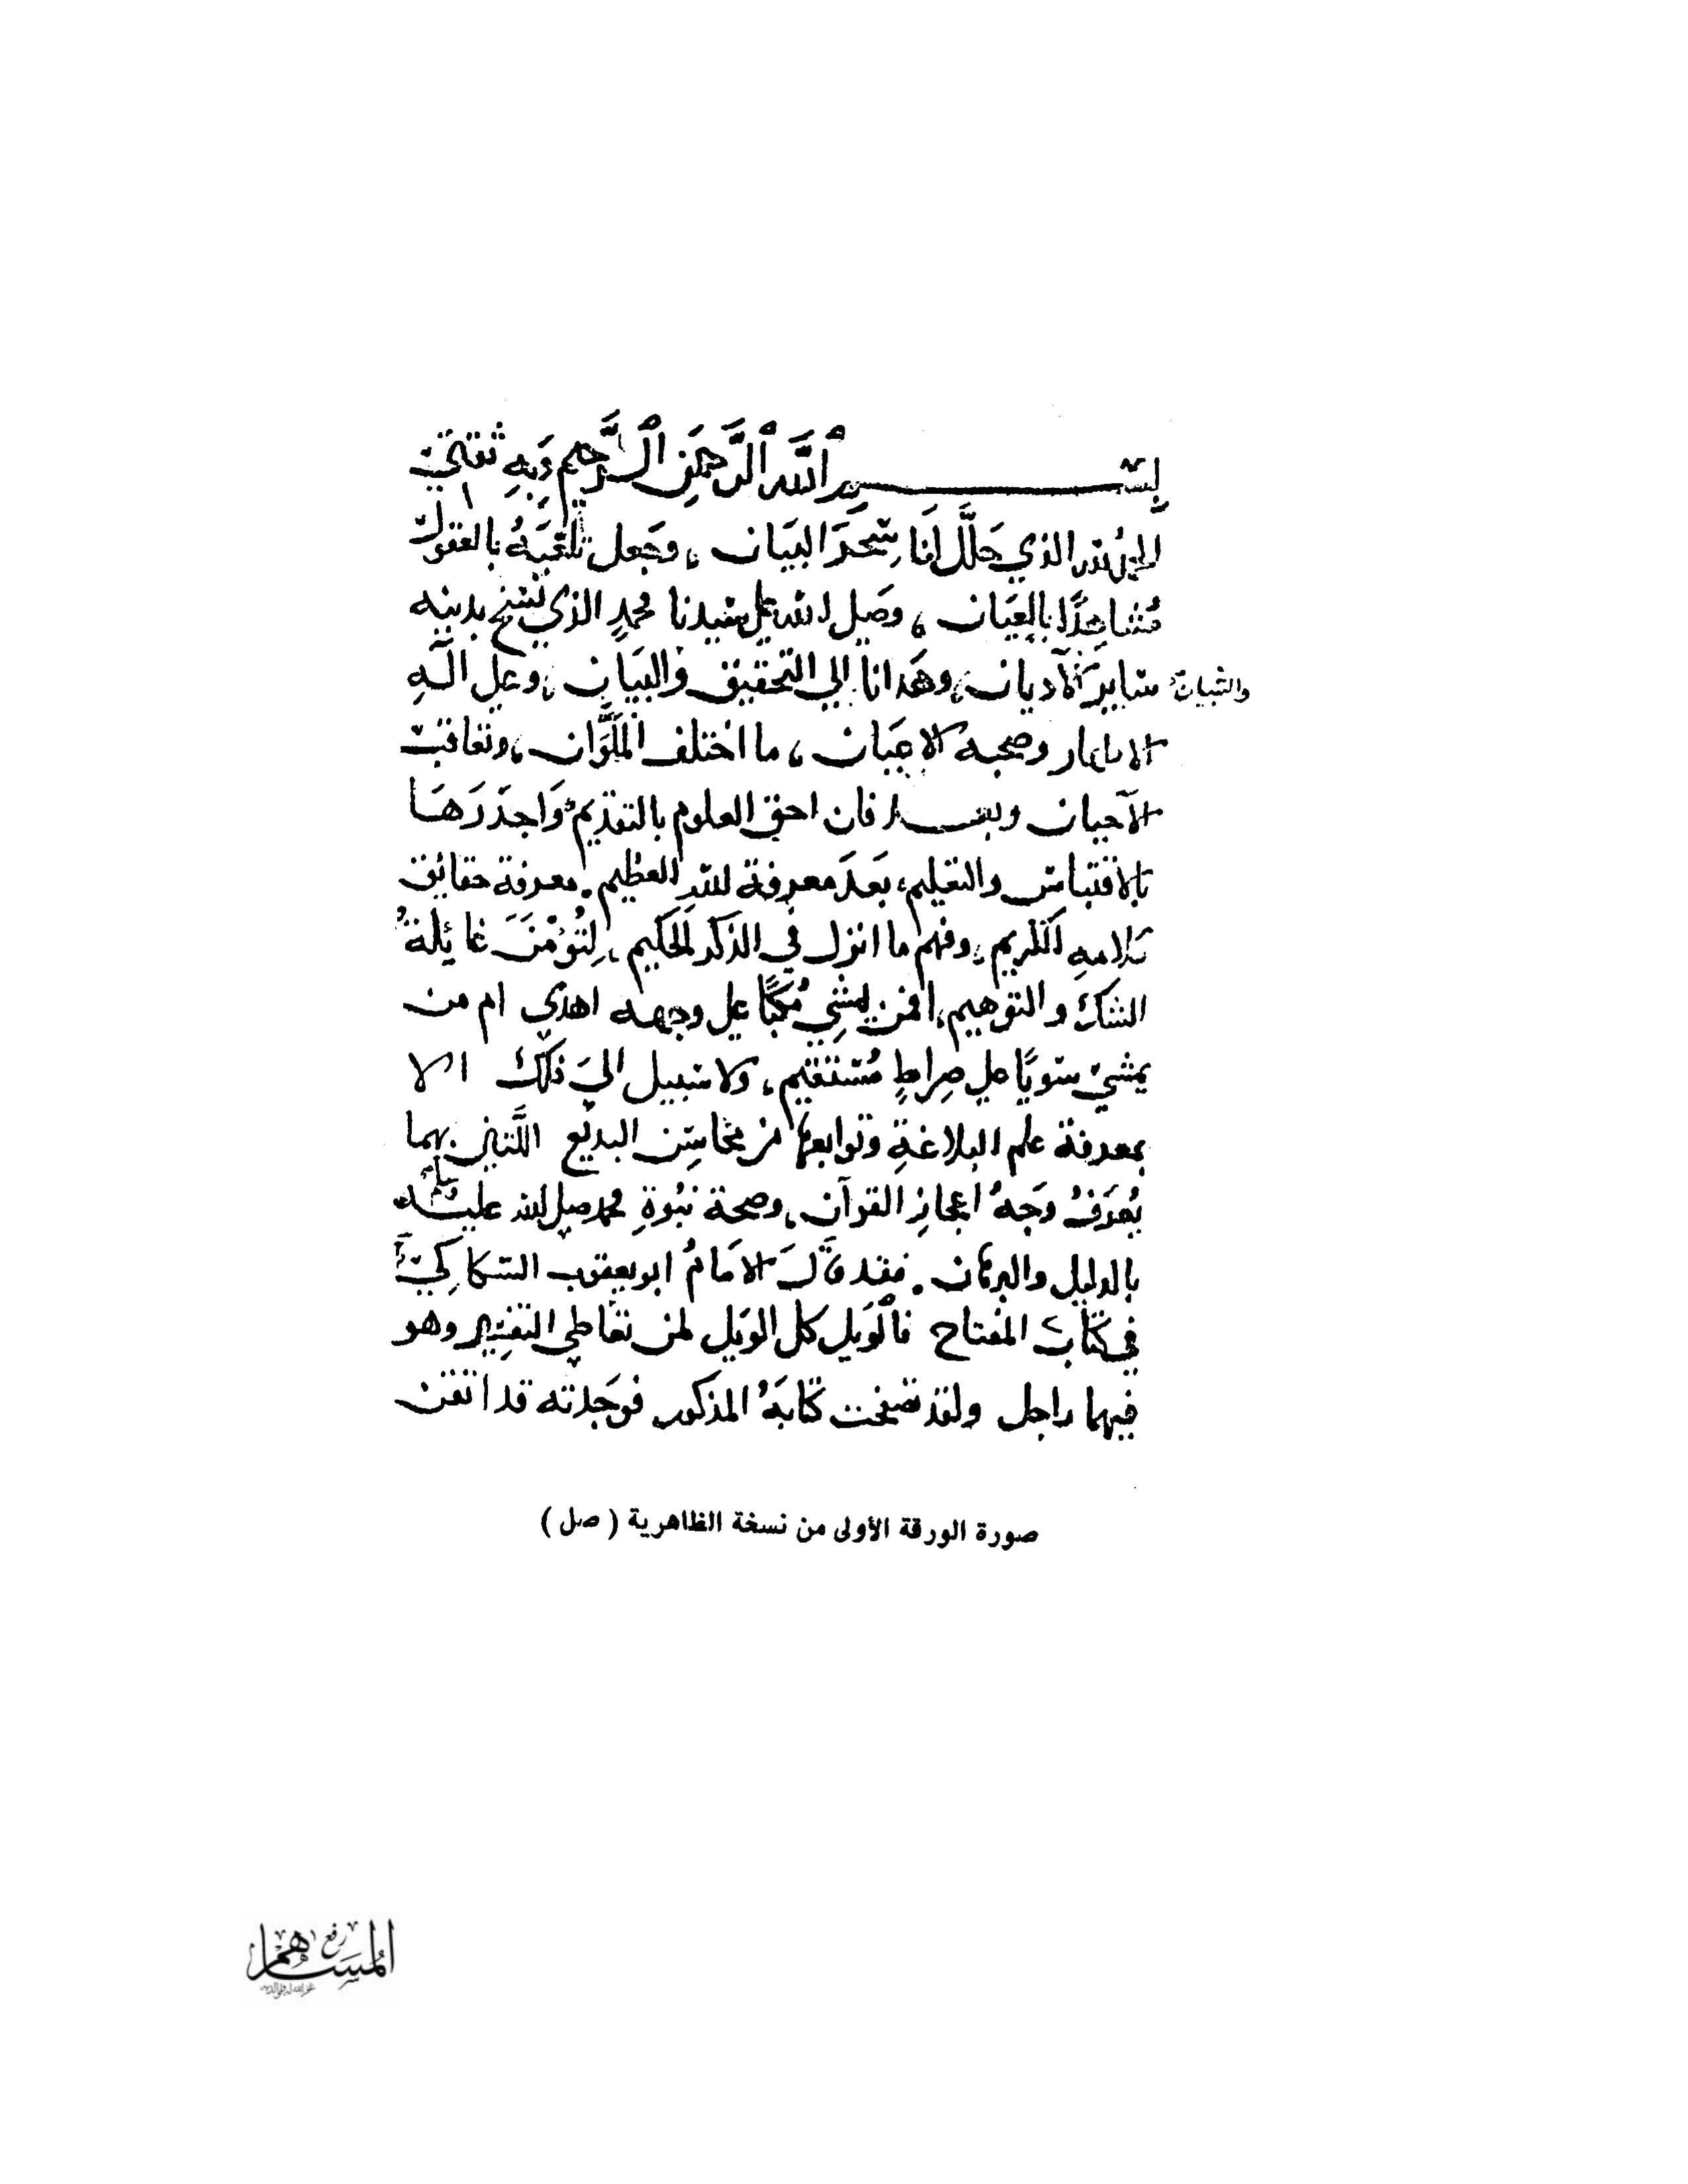 بسم الله الرَّحمَنِ الرَّحيم وَبِهِ ثِقَتي
الحمدُ لله الذي حَلَّلَ لنَا سِحْرَ البَيَان ، وجَعل تَلَعُّبَهُ بالعقول
مُشاهَدًا بالعِيَان ، وصَلى الله على سَيدنا محمدٍ الذي نَسَخ بدينه
سَايرَ الأديان ، وهَدانا الى التَّحقيق والبَيَان ، وعلى آلهِ
والتبيان
الاطهار وصحبه الاعيَان ، ما اختلف المَلَوَان ، وتعاقبت
الأحيان وبعـــد فان احق العلوم بالتقديم وَاجدَرَهَا
بالاقتباس والتعليم ، بَعدَ معرفة الله العظيم . معرفة حقائق
كلامهِ الكريم ، وفهم ما انزل في الذكر الحكيم ، لِتُؤْمَنَ غائلةُ
الشك والتوهيم ، افمن يمشِي مُكِبًّا على وجهه اهدى ام من
يمشي سَويًّا على صِراطٍ مُستقيم ، ولا سَبيل الى ذلك الا
بمعرفة علم البلاغةِ وتوابعها من مَحاسِن البديع اللَّتين بهما
يُعرَفُ وَجهُ اعجازِ القرآن ، وصحة نبُوةِ محمد صلى الله عليه وسلم
بالدليل والبرهان . فقد قَالَ الامَامُ ابو يعقوب السكاكي
في كتاب المفتاح فالوَيل كل الوَيل لمن تعَاطى التفسِير وهو
فيهما راجل ولقد تصفحت كتابهُ المذكور فوجدته قد اتقن
صورة الورقة الأولى من نسخة الظاهرية ( صل )
رفع
المساهم